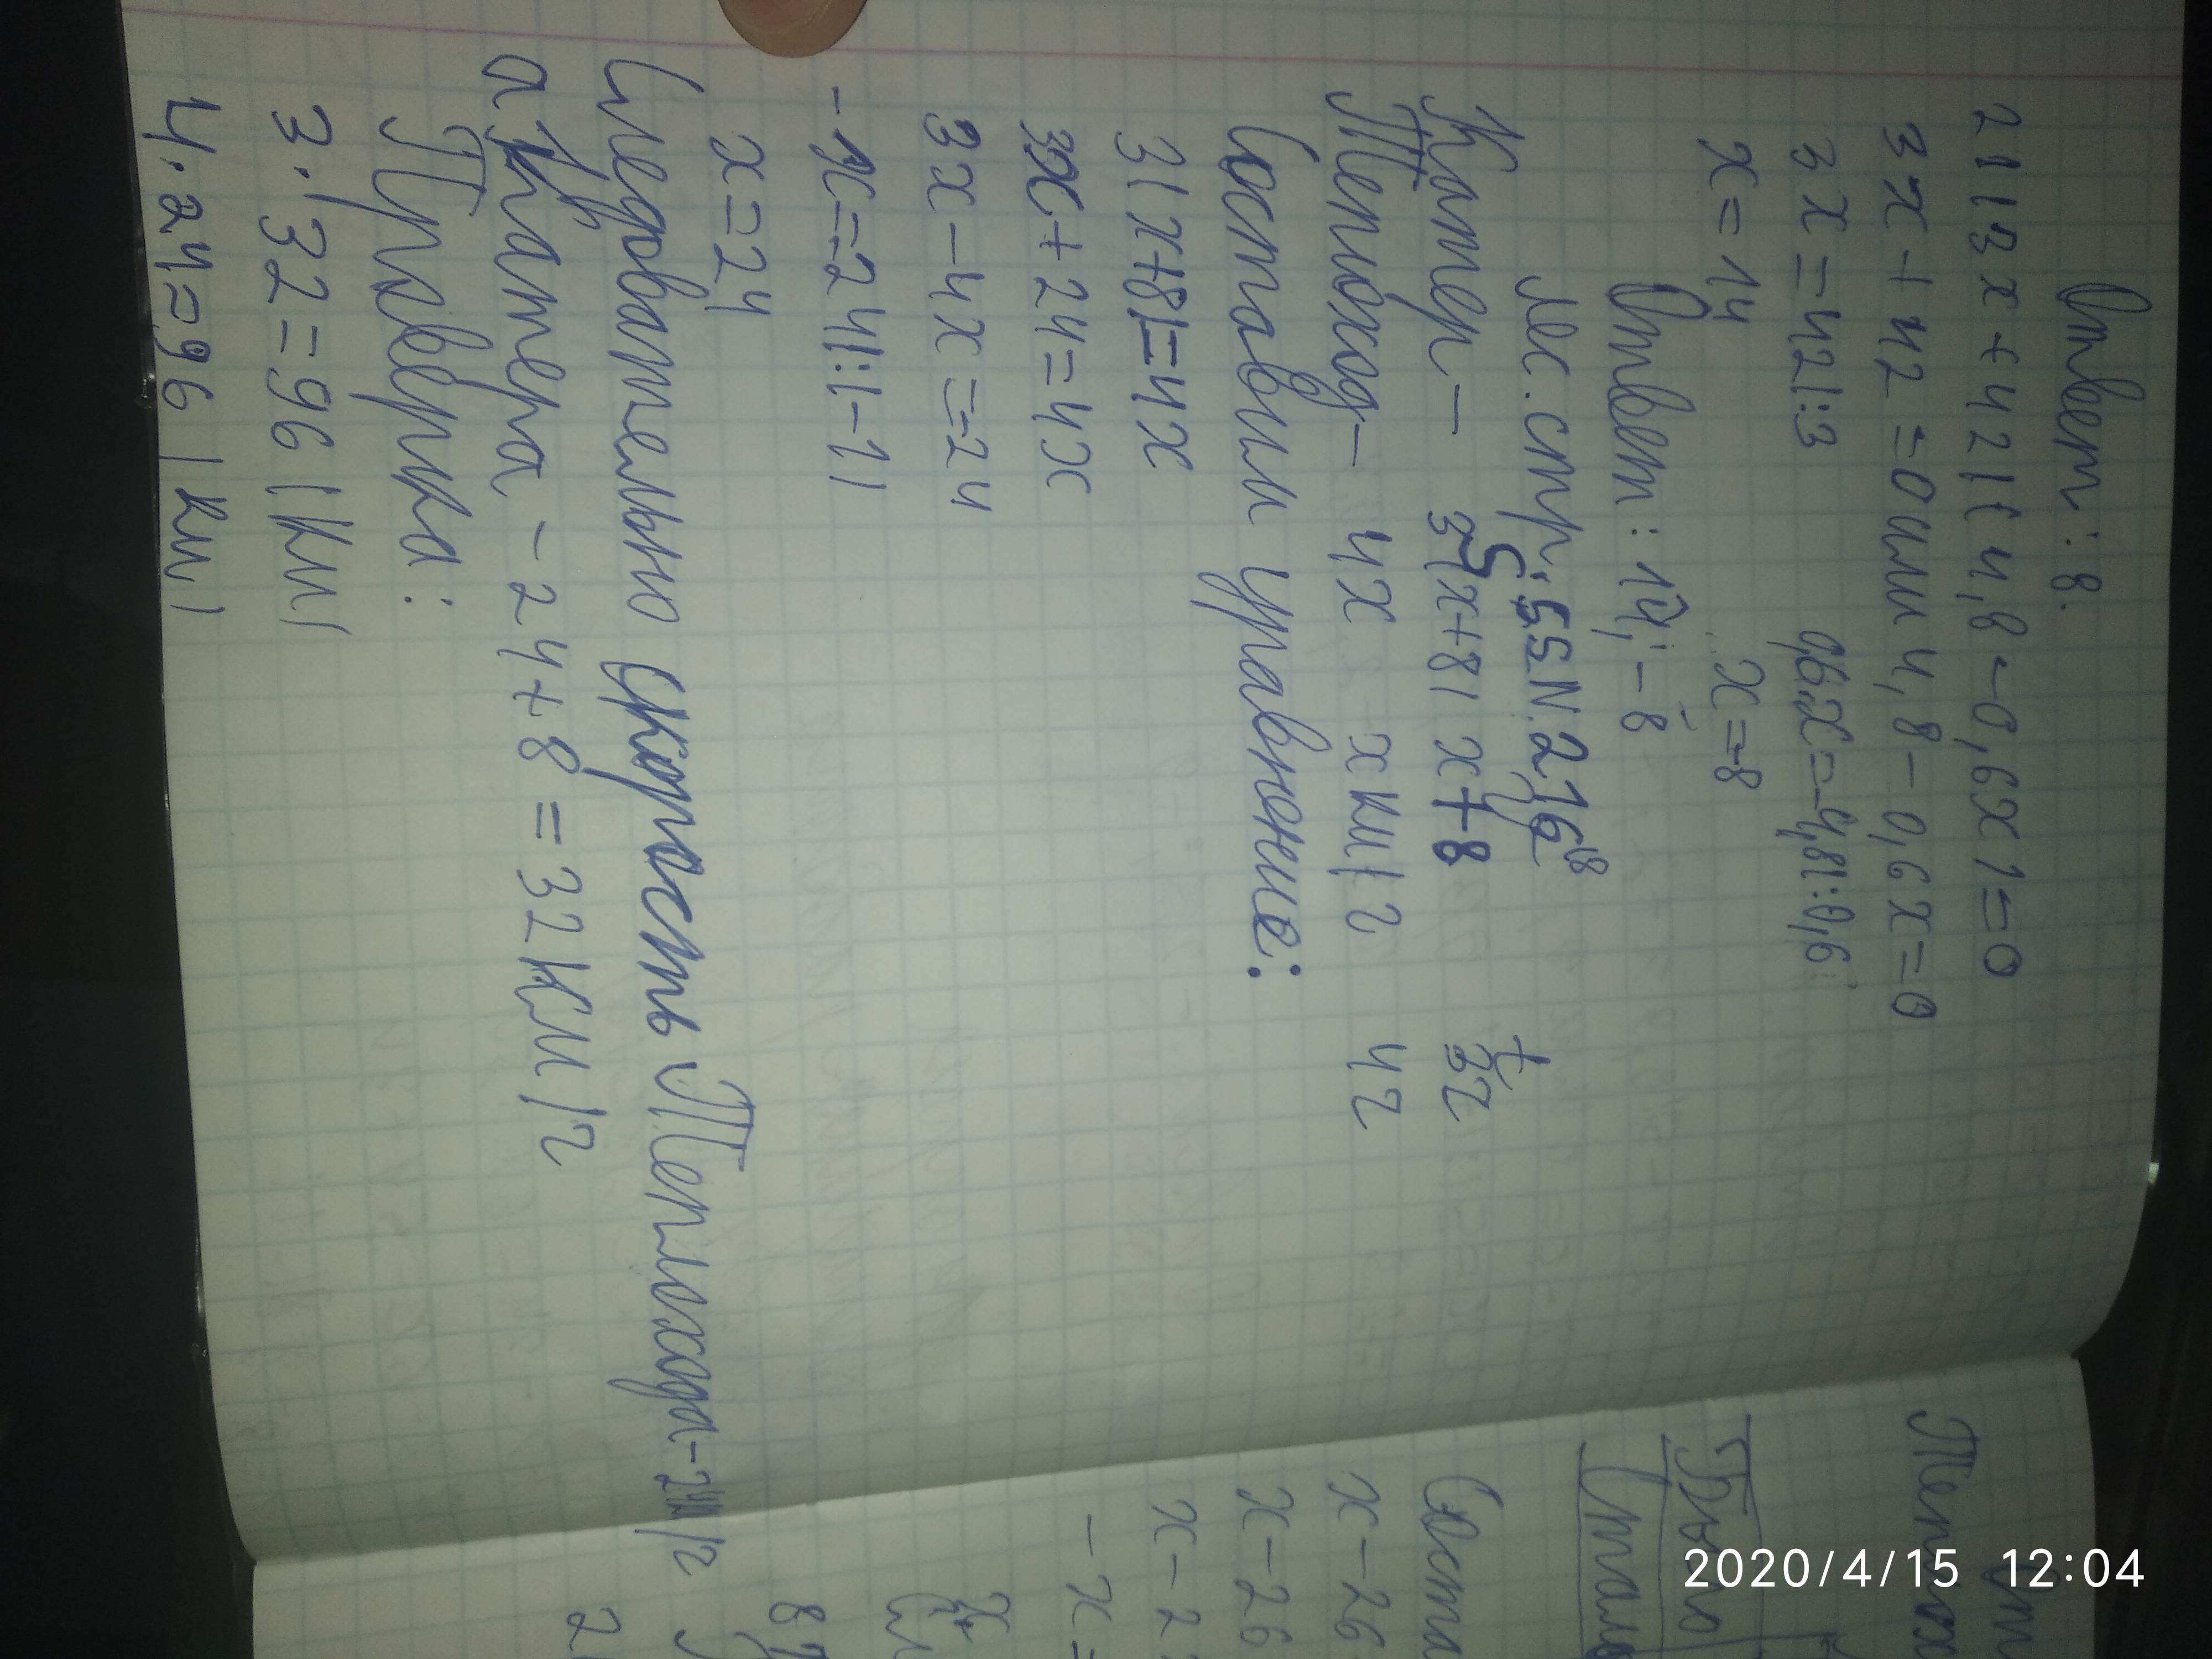 Ответ: 8.
2) (3x+42)(4,8-0,6x)=0
3x+42=0 или 4,8-0,6x=0
3x=42):3 0,6x=-4,8):0,6
x=14 x=-8
Ответ: 14; -8
Лес. стр. 55 N. 216
S 18 t
Катер- 3(x+8) x+8 3ч
Теплоход- 4x x км/ч 4ч
Составим уравнение:
3(x+8)=4x
3x+24=4x
3x-4x=-24
-x=-24):(-1)
x=24
Следовательно скорость Теплохода-24км/ч
а катера - 24+8=32км/ч
Проверка:
3·32=96(км)
4·24=96(км)
x-26
x-26
x-2
-x=
2020/4/15 12:04